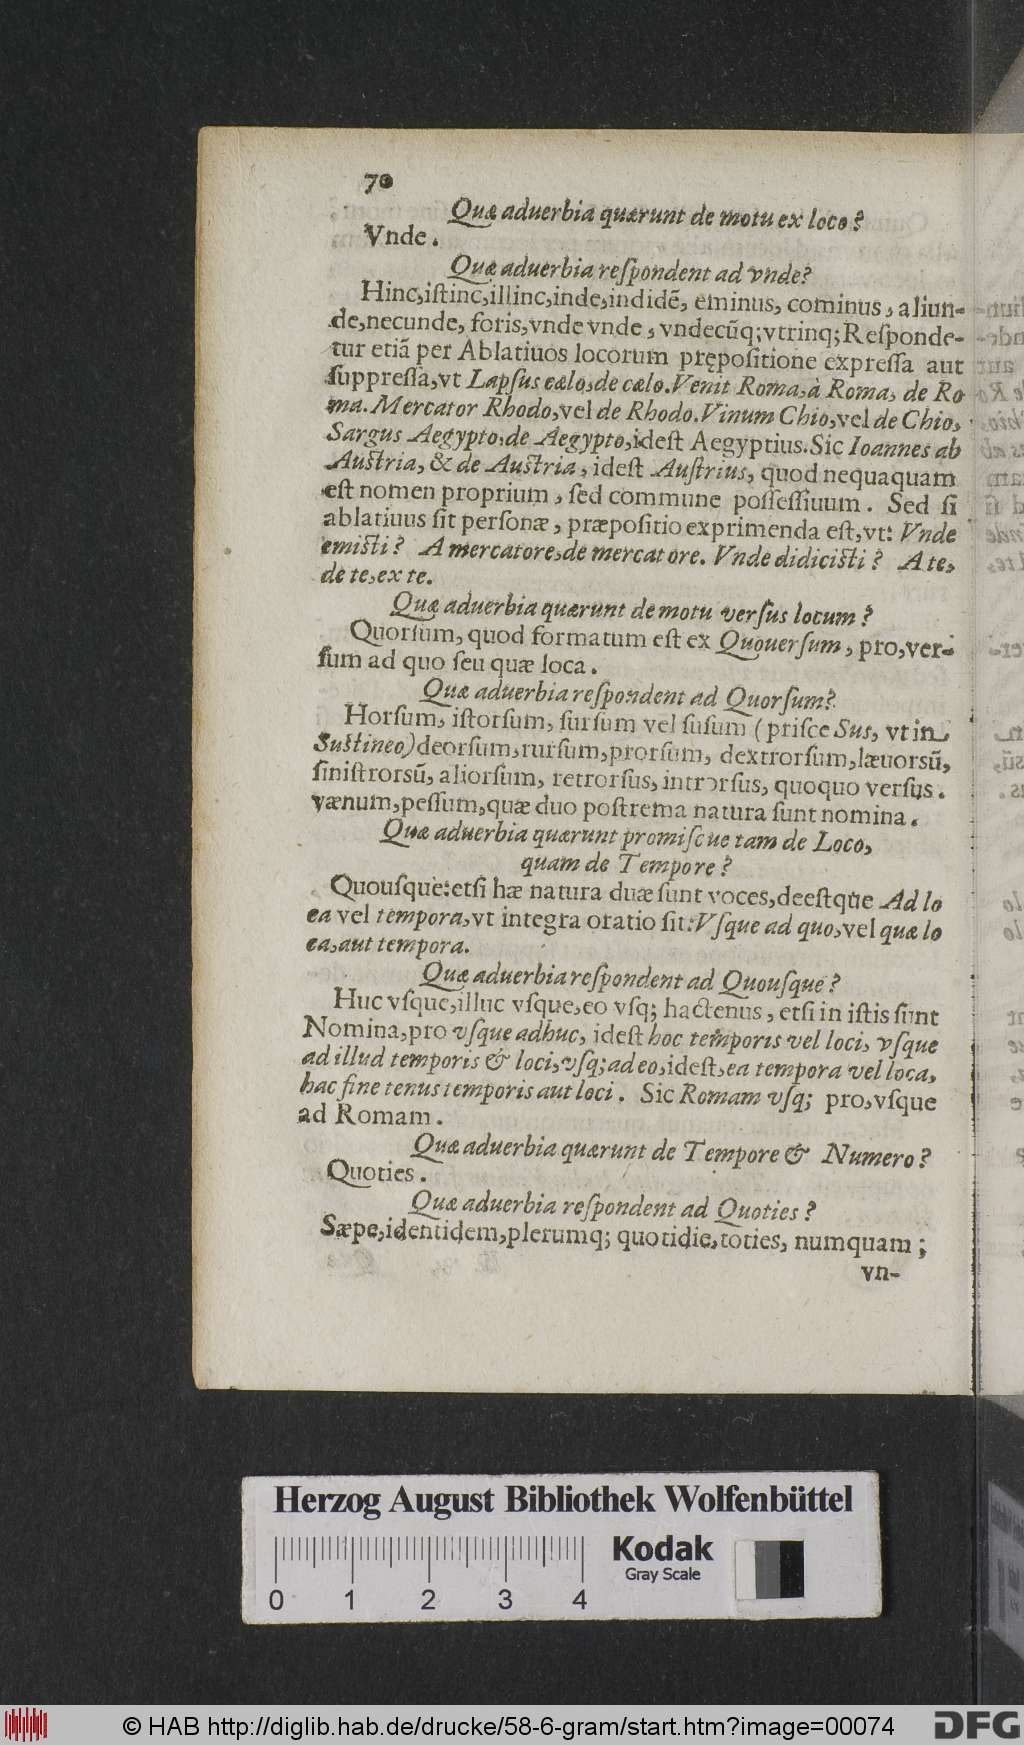 70
Quæ aduerbia quærunt de motu ex loco?
Vnde.
Quæ aduerbia reſpondent ad vnde?
Hinc,iſtinc,illinc,inde,indidẽ, eminus, cominus, aliun-
de,necunde, foris,vnde vnde, vndecũq;vtrinq;Reſponde-
tur etiã per Ablatiuos locorum prępoſitione expreſſa aut
ſuppreſſa,vt Lapſus cælo,de cælo.Venit Roma,à Roma, de Ro
ma.Mercator Rhodo,vel de Rhodo.Vinum Chio,vel de Chio,
Sargus Aegypto,de Aegypto,ideſt Aegyptius.Sic Ioannes ab
Auſtria, & de Auſtria, ideſt Auſtrius, quod nequaquam
eſt nomen proprium, ſed commune poſſeſſiuum. Sed ſi
ablatiuus ſit perſonæ, præpoſitio exprimenda eſt,vt: Vnde
emiſti? A mercatore,de mercatore. Vnde didiciſti? A te,
de te,ex te.
Quæ aduerbia quærunt de motu verſus locum?
Quorſum, quod formatum eſt ex Quouerſum, pro,ver-
ſum ad quo ſeu quæ loca.
Quæ aduerbia reſpondent ad Quorſum?
Horſum, iſtorſum, ſurſum vel ſuſum (priſce Sus, vt in
Suſtineo)deorſum,rurſum,prorſum, dextrorſum,læuorsũ,
ſiniſtrorsũ, aliorſum, retrorſus, introrſus, quoquo verſus.
vænum,peſſum,quæ duo poſtrema natura ſunt nomina.
Quæ aduerbia quærunt promiſcue tam de Loco,
quam de Tempore?
Quouſque:etſi hæ natura duæ ſunt voces,deeſtque Ad lo
ca vel tempora,vt integra oratio ſit:Vſque ad quo,vel quæ lo
ca,aut tempora.
Quæ aduerbia reſpondent ad Quouſque?
Huc vſque,illuc vſque,eo vſq; hactenus, etſi in iſtis ſunt
Nomina,pro vſque adhuc, ideſt hoc temporis vel loci, vſque
ad illud temporis & loci,vſq;adeo,ideſt,ea tempora vel loca,
hac fine tenus temporis aut loci. Sic Romam vſq; pro,vſque
ad Romam.
Quæ aduerbia quærunt de Tempore & Numero?
Quoties.
Quæ aduerbia reſpondent ad Quoties?
Sæpe,identidem,plerumq; quotidie,toties, numquam;
vn-
Herzog August Bibliothek Wolfenbüttel
Kodak
Gray Scale
0 1 2 3 4
© HAB http://diglib.hab.de/drucke/58-6-gram/start.htm?image=00074
DFG